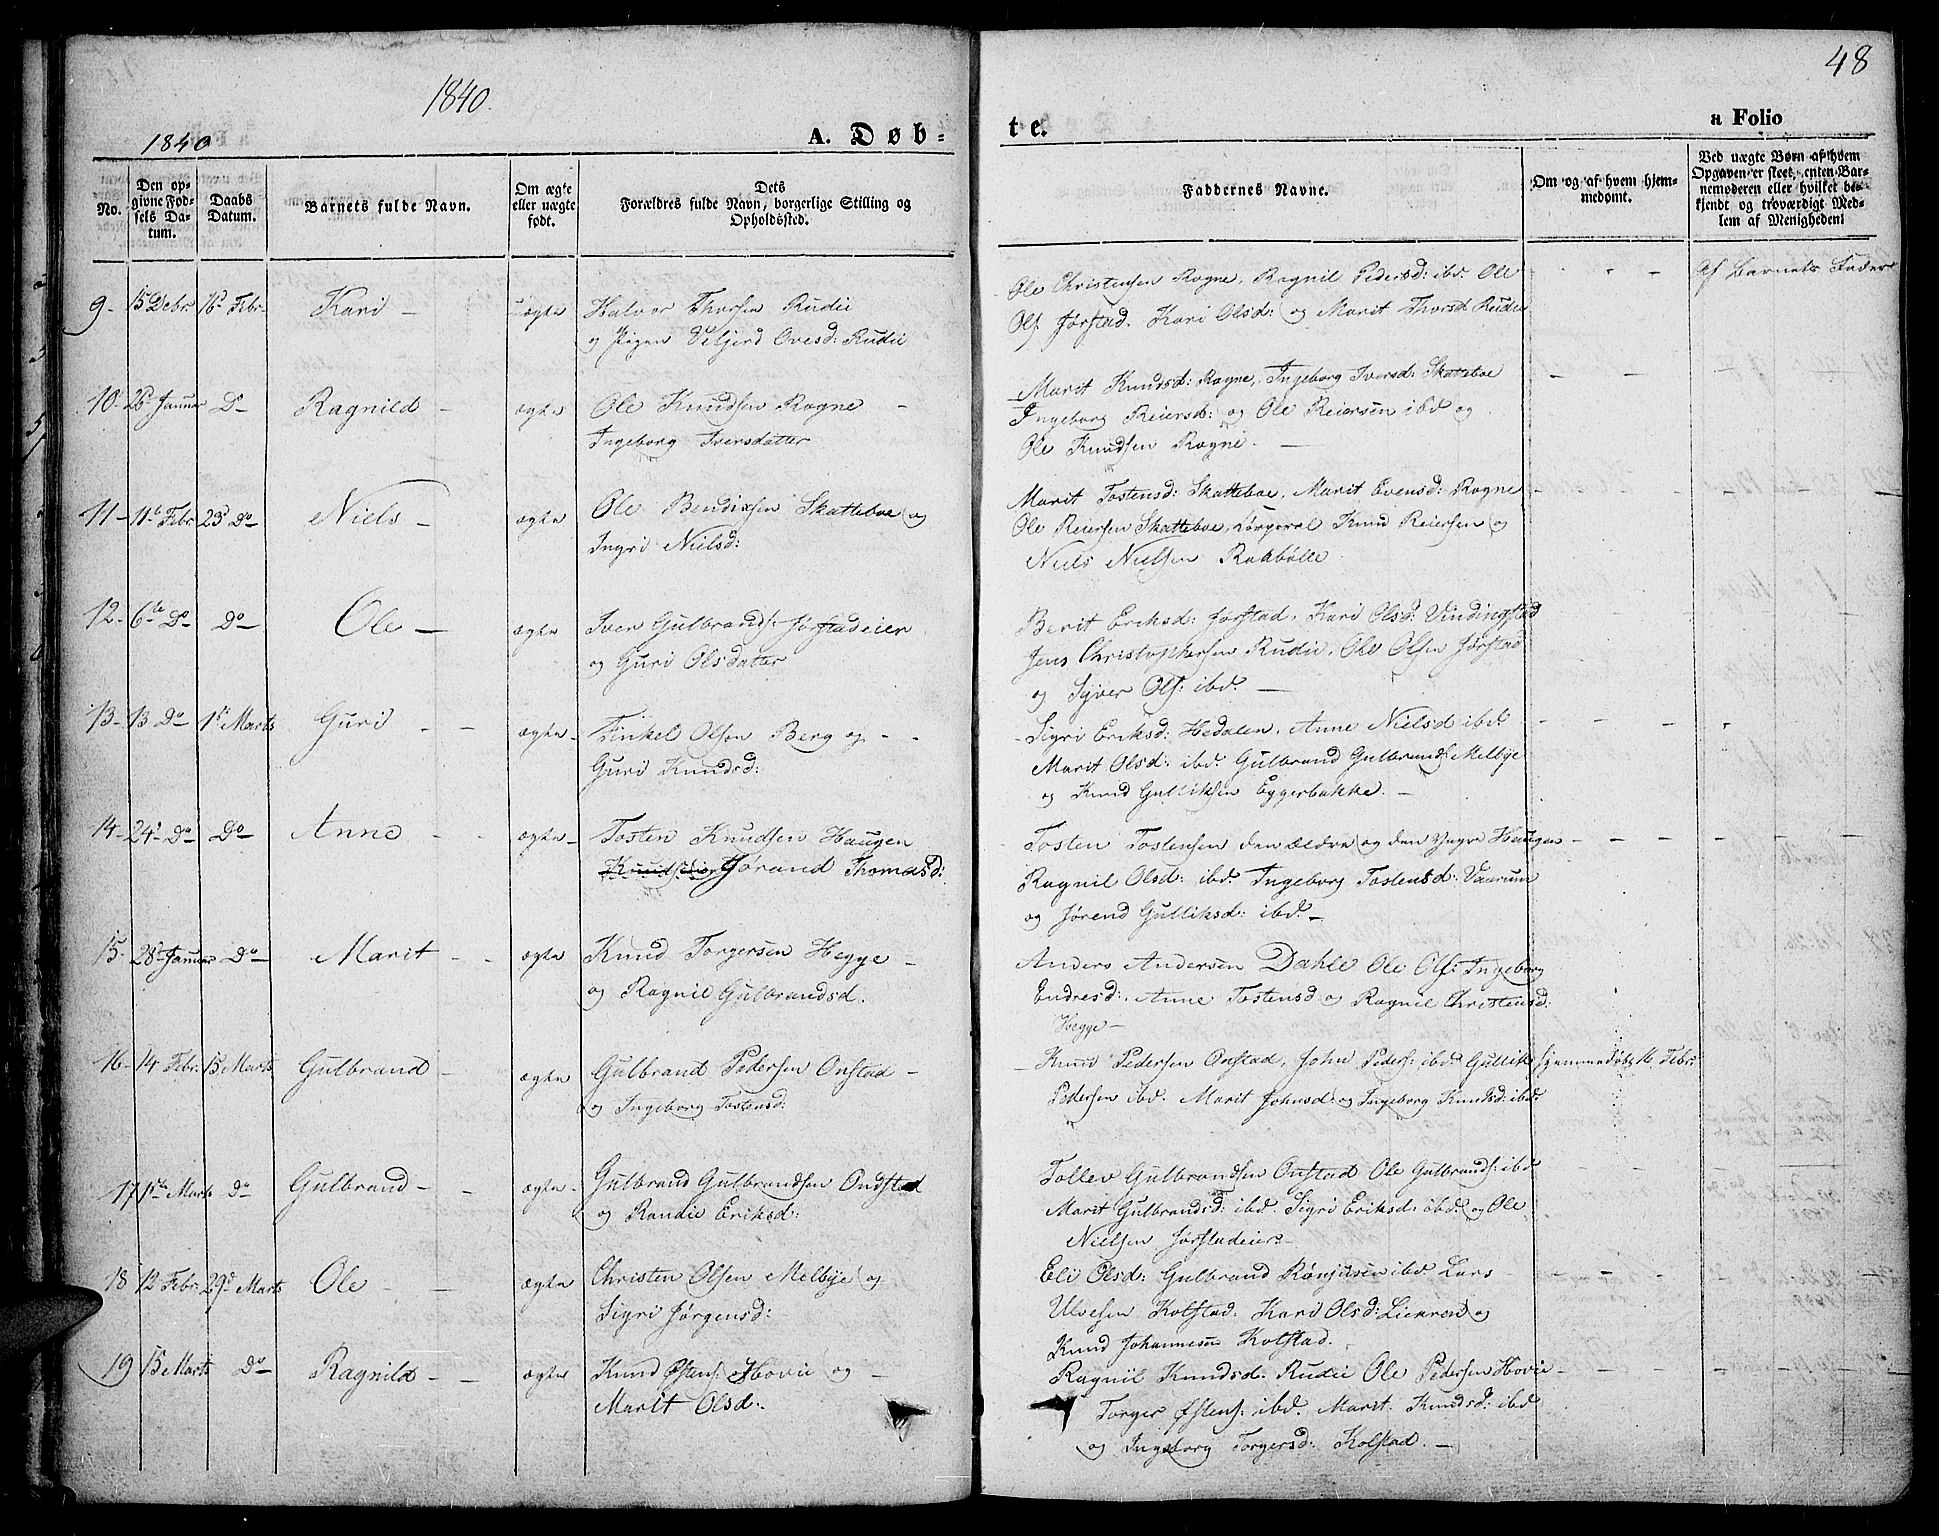 1840.
48
1840
A. Døb-
te.
a Folio
No.
Den op-
givne Fød-
sels Da-
tum.
Daabs
Datum.
Barnets fulde Navn.
Om ægte
eller uægte
født.
Dets
Forældres fulde Navn, borgerlige Stilling og
Opholdssted.
Faddernes Navne.
Om og af hvem hjem-
medømt.
Ved uægte Børn af hvem
Opgaven er skeet, enten Bar-
nemoderen eller hvilket be-
kjendt og troværdigt Med-
lem af Menigheden!
9 - 15 Debr. 16d Febr. Kari - uægte Halvor Thorsen Rudii
og Pigen Veljerd Ovesd: Rudie
Ole Christensen Rogne, Ragnil Pedersd: ibd. Ole
Ols: Jørstad. Kari Olsd: og Marit Thorsd Rudie
Af Barnets Fader
10 - 26d Januar Do - Ragnild - ægte Ole Knudsen Rogne -
Ingeborg Iversdatter
Marit Knudsd: Rogne, Ingeborg Iversd: Skatteboe
Ingeborg Reiersd: og Ole Reiersen ibd og
Ole Knudsen Rogne. -
11 - 11te Febr. 23d Do - Niels - ægte Ole Bendixsen Skatteboe og
Ingri Nielsd:
Marit Tostensd: Skatteboe, Marit Evensd: Rogne
Ole Reiersen Skatteboe, Corporal Knud Reiersen og
Niels Nielsen Rakbølle
12 - 6te Do - Do - Ole - ægte Iver Gulbrands: Jørstadeier
og Guri Olsdatter
Berit Eriksd: Jørstad, Kari Olsd: Vindingstad
Jens Christophersen Rudie, Ole Olsen Jørstad
og Syver Ols: ibd. -
13 - 13 Do - 1ste Marts Guri - - ægte - Finkel Olsen Berg og - -
Guri Knudsd:
Sigri Eriksd: Hedalen, Anne Nielsd ibd.
Marit Olsd: ibd. Gulbrand Gulbrands: Melbye
og Knud Gulliksen Eggerbakke. -
14 - 24d Do - Do - Anne - - ægte - Tosten Knudsen Haugen
Jørand Thomasd:
Tosten Tostensen den ældre og den Yngre Haugen
Ragnil Olsd: ibd. Ingeborg Tostensd: Vaarum
og Jørend Gulliksd: ibd. -
15 - 28d Januar Do - Marit - - ægte Knud Torgersen Hegge -
og Ragnil Gulbrandsd.
Anders Andersen Dahle Ole Ols: Ingeborg
Endresd: Anne Tostensd og Ragnil Christensd:
Hegge -
16 - 14 Febr. 15 Marts Gulbrand - ægte Gulbrand Pedersen Onstad -
og Ingeborg Tostensd:
Knud Pedersen Onstad, John Peders: ibd. Gullik Hjemmedøbt 16 Febr.
Pedersen ibd. Marit Johnsd: og Ingeborg Knudsd: ibd.
17 1ste Marts Do Gulbrand - - ægte - Gulbrand Gulbrandsen Ondstad
og Randie Eriksd:
Tollev Gulbrandsen Onstad Ole Gulbrands: ibd
Marit Gulbrandsd: ibd. Sigri Eriksd: ibd. og Ole
Nielsen Jørstadeier -
18 12 Febr. 29d Marts Ole - - ægte Christen Olsen Melbye og
Sigri Jørgensd:
Eli Olsd: Gulbrand ibd Lars
Ulvesen Kolstad. Kari Olsd: og
Knud Johannesen Kolstad.
19 15 Marts Do Ragnild - - ægte Knud Østens: Hovie og -
Marit Olsd:.
Ragnil Knudsd. Rudie Ole Pedersen Hovie -
Torger Østens: ibd. Marit Knudsd: ibd
og Ingeborg Torgersd: Kolstad. -